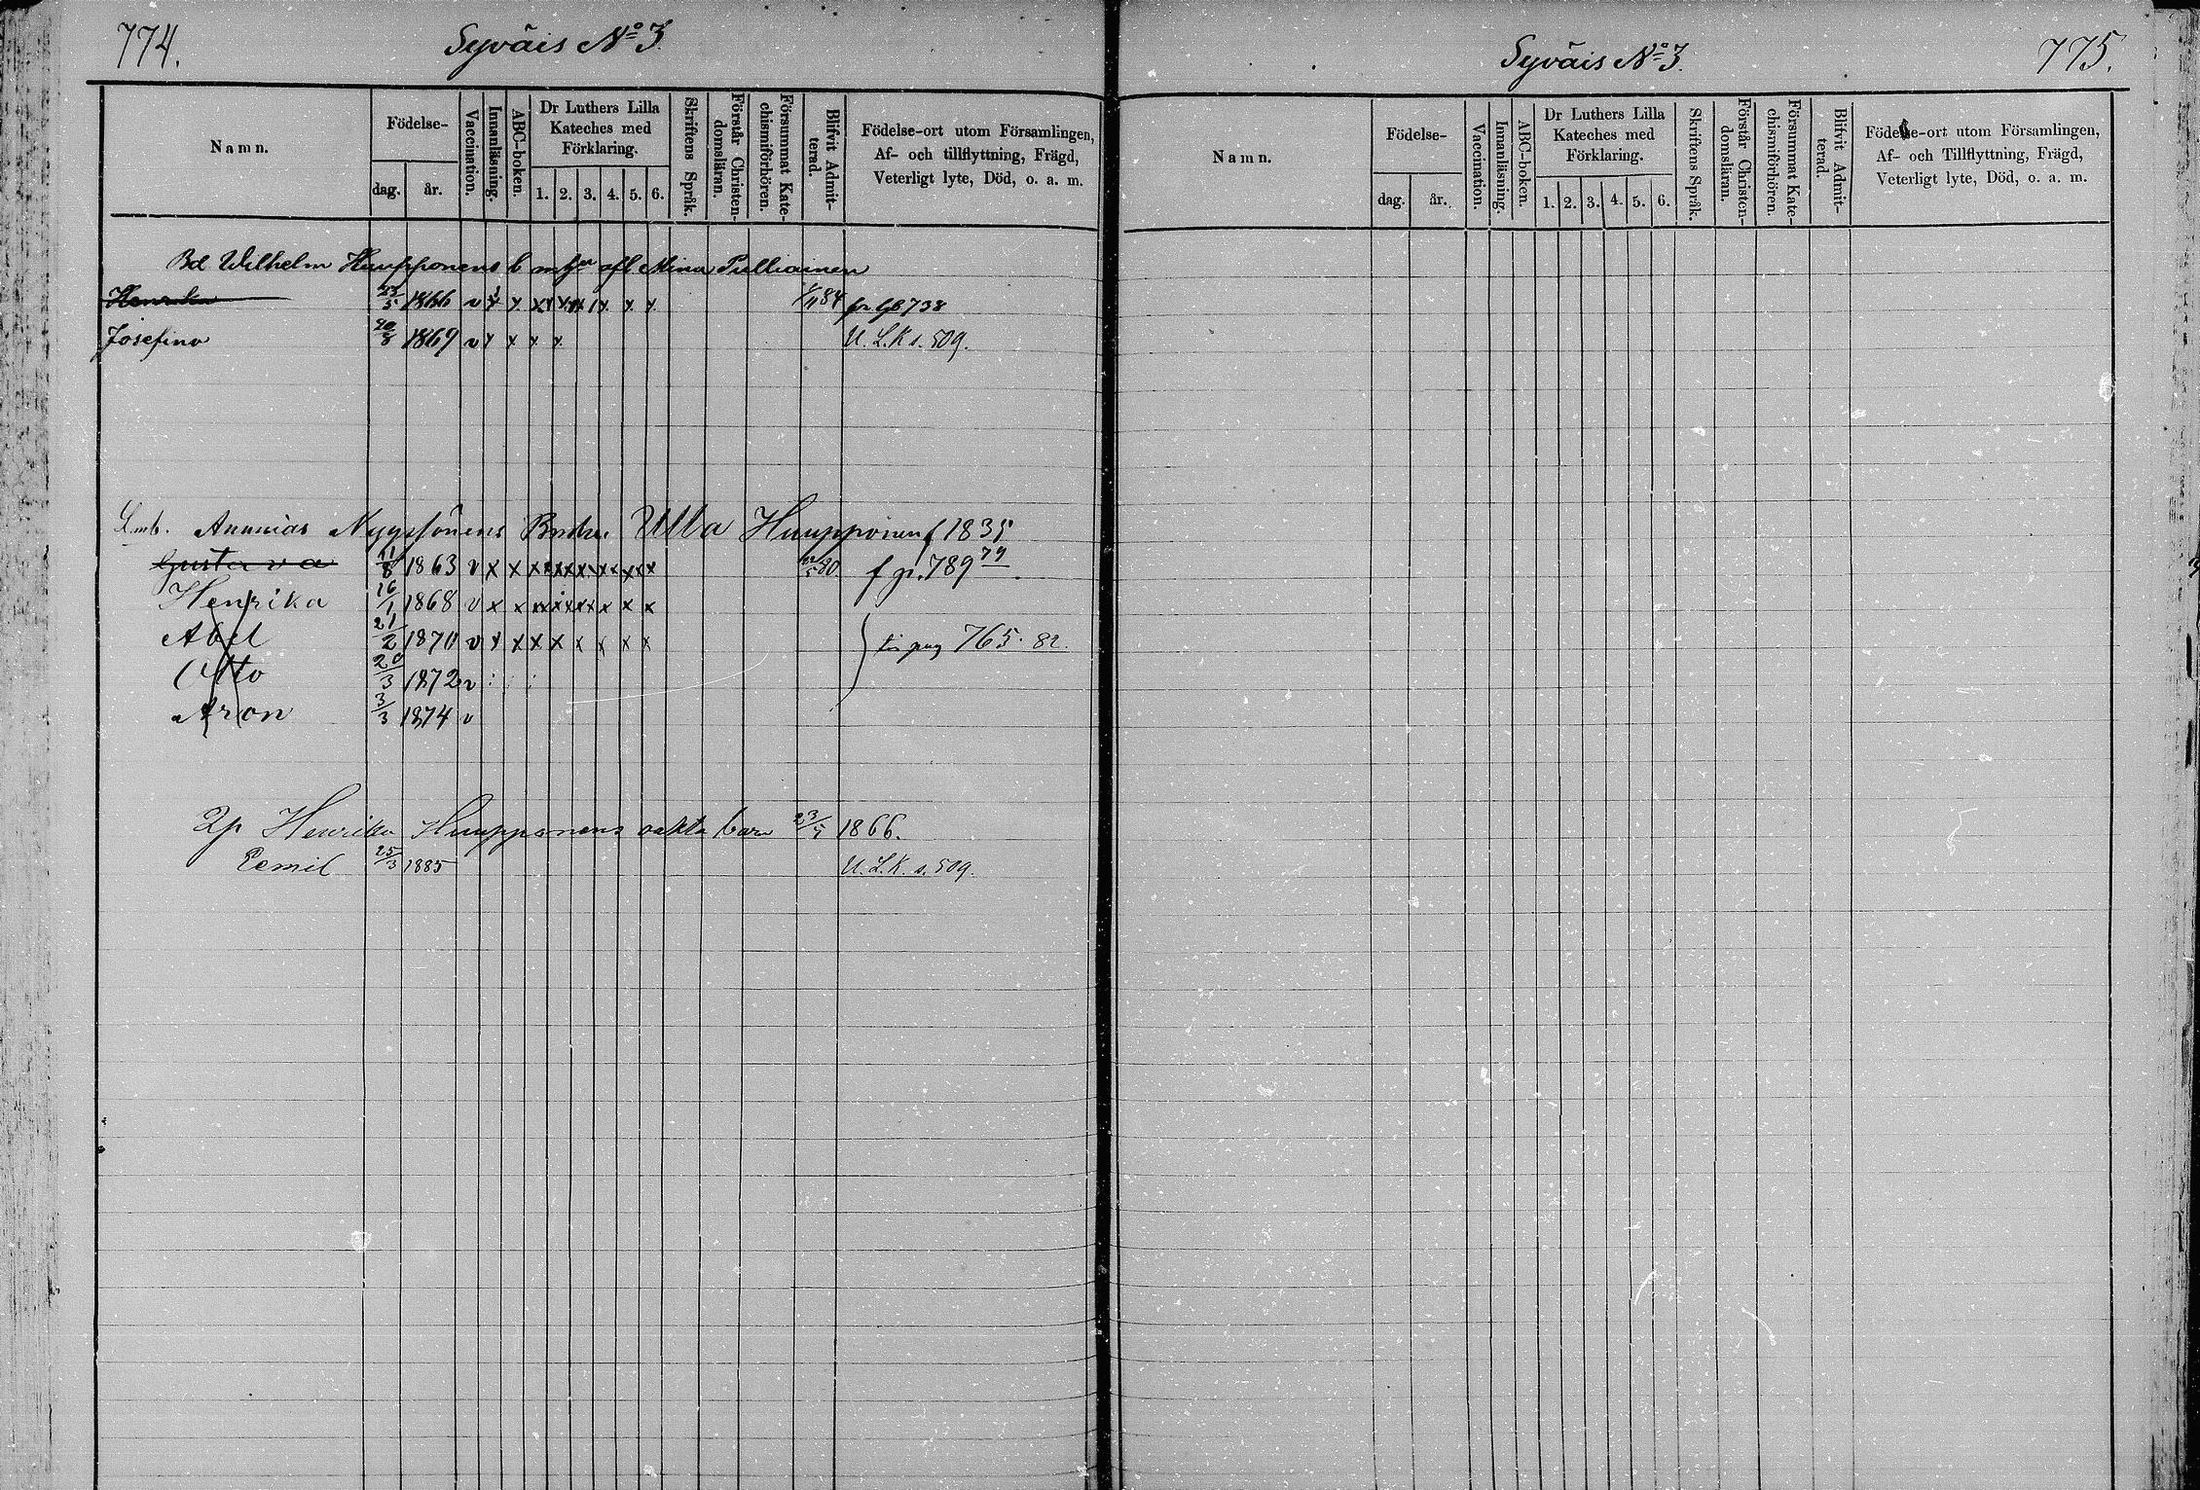 774.
Syväis Nº 3.
Namn.
Födelse-
dag.
år.
Vaccination.
Innanläsning.
ABC-boken.
Dr Luthers Lilla
Kateches med
Förklaring.
1. 2. 3. 4. 5. 6.
Skriftens Språk.
Förstår Christen-
domsläran.
Försummat Kate-
chismiförhören.
Blifvit Admit-
terad.
Födelse-ort utom Församlingen,
Af- och tillflyttning, Frägd,
Veterligt lyte, Död, o. a. m.
Bd Wilhelm Huupponens b afl Mina Pulliainen
Henrika 23/5 1866 v x x x x x x x x 84 738
Josefina 20/8 1869 v x x x x U. L. K s. 509.
Ananias Nyyssönens Ulla Huupponen f 1835
Gustava 11/8 1863 v x x x x x x x x x x 80 789 79
Henrika 16/1 1868 v x x x x x x x x x
Abel 21/2 1870 v x x x x x x x x 765. 82.
Otto 20/3 1872 v
Aron 3/3 1874 v
Henrika Huupponens oäkta barn 23/5 1866.
Eemil 25/3 1885 U. L. K. s. 509.
Syväis Nº 3.
775.
Namn.
Födelse-
dag.
år.
Vaccination.
Innanläsning.
ABC-boken.
Dr Luthers Lilla
Kateches med
Förklaring.
1. 2. 3. 4. 5. 6.
Skriftens Språk.
Förstår Christen-
domsläran.
Försummat Kate-
chismiförhören.
Blifvit Admit-
terad.
Födelse-ort utom Församlingen,
Af- och Tillflyttning, Frägd,
Veterligt lyte, Död, o. a. m.